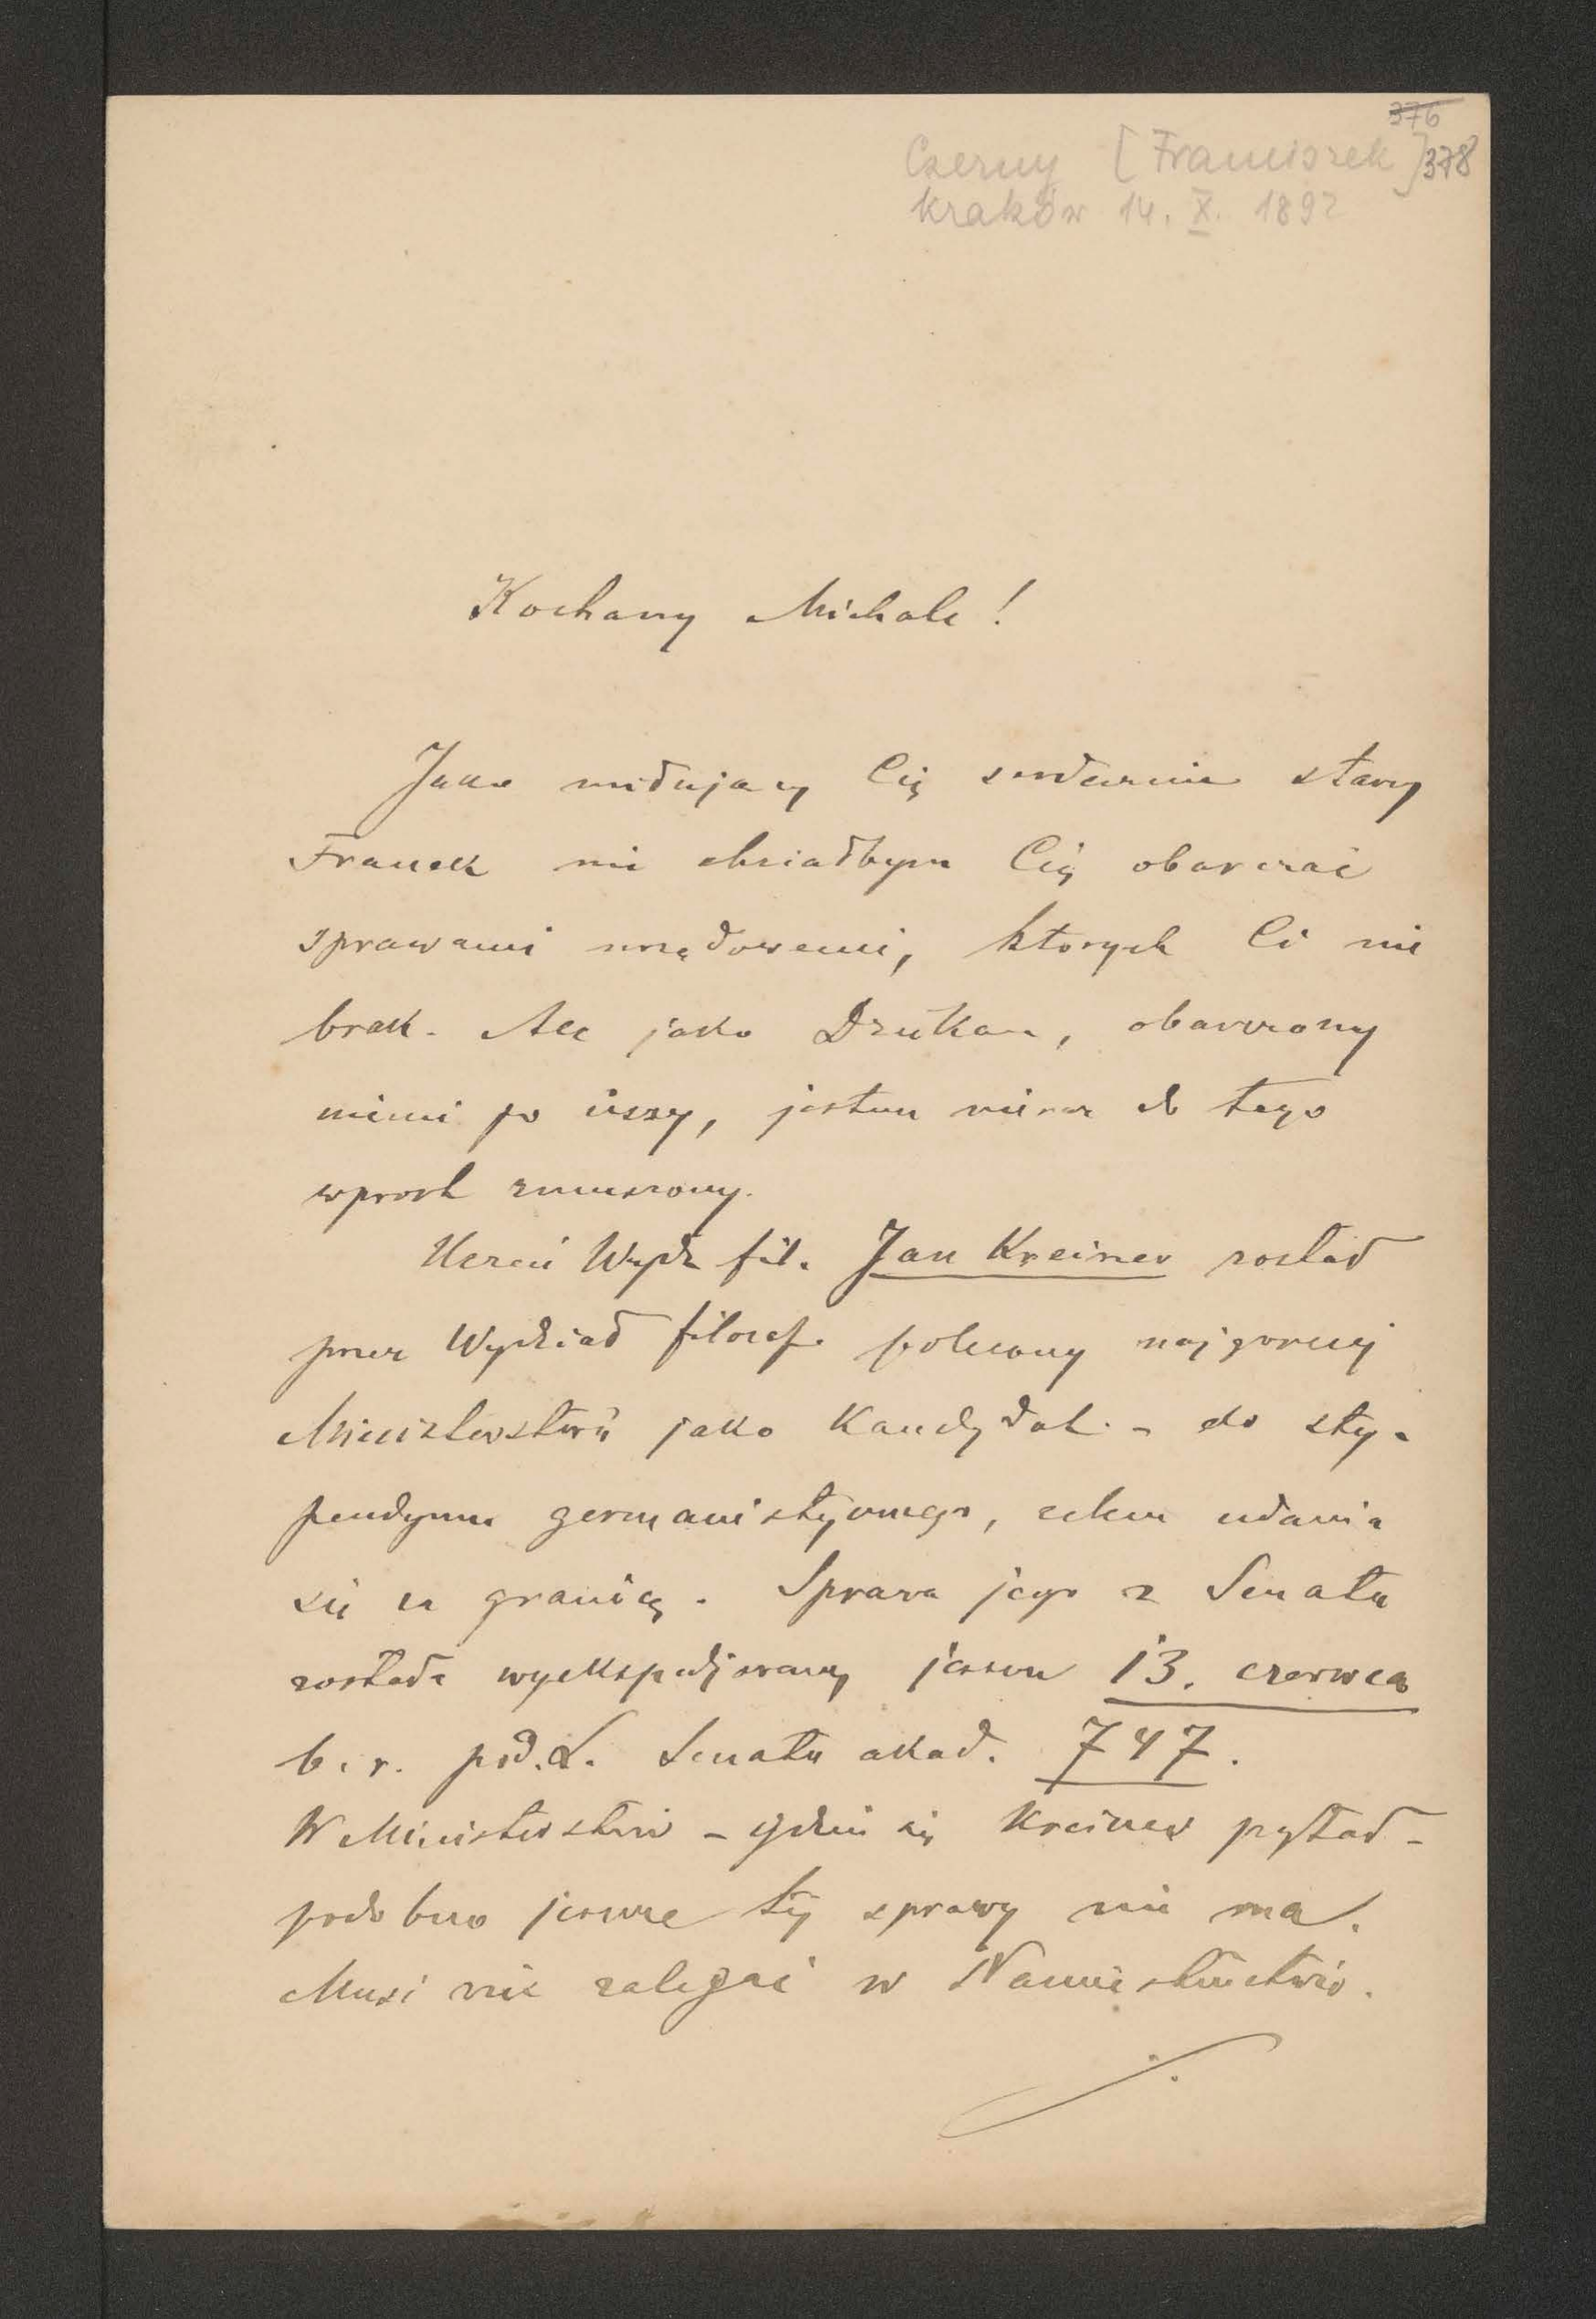 376
Czerny [Franciszek] 378
Kraków 14. X. 1892
Kochany Michale!
Jako miłujący Cię serdecznie stary
Franek nie chciałbym Cię obarczać
sprawami urzędowemi, których Ci nie
brak. Ale jako Dziekan, obarczony
niemi po uszy, jestem nieraz do tego
wprost zmuszony.
Uczeń Wydz fil. Jan Kreiner został
przez Wydział filozof. polecony najgoręcej
Ministerstwu jako Kandydat - do sty-
pendyum germanistycznego, celem udania
się za granicę. Sprawa jego z Senatu
została wyekspedjowaną jeszcze 13. czerwca
b. r. pod. L. Senatu akad. 747.
W Ministerstwie - gdzie się Kreiner pytał -
podobno jeszcze tej sprawy nie ma.
Musi więc zalegać w Namiestnictwie.